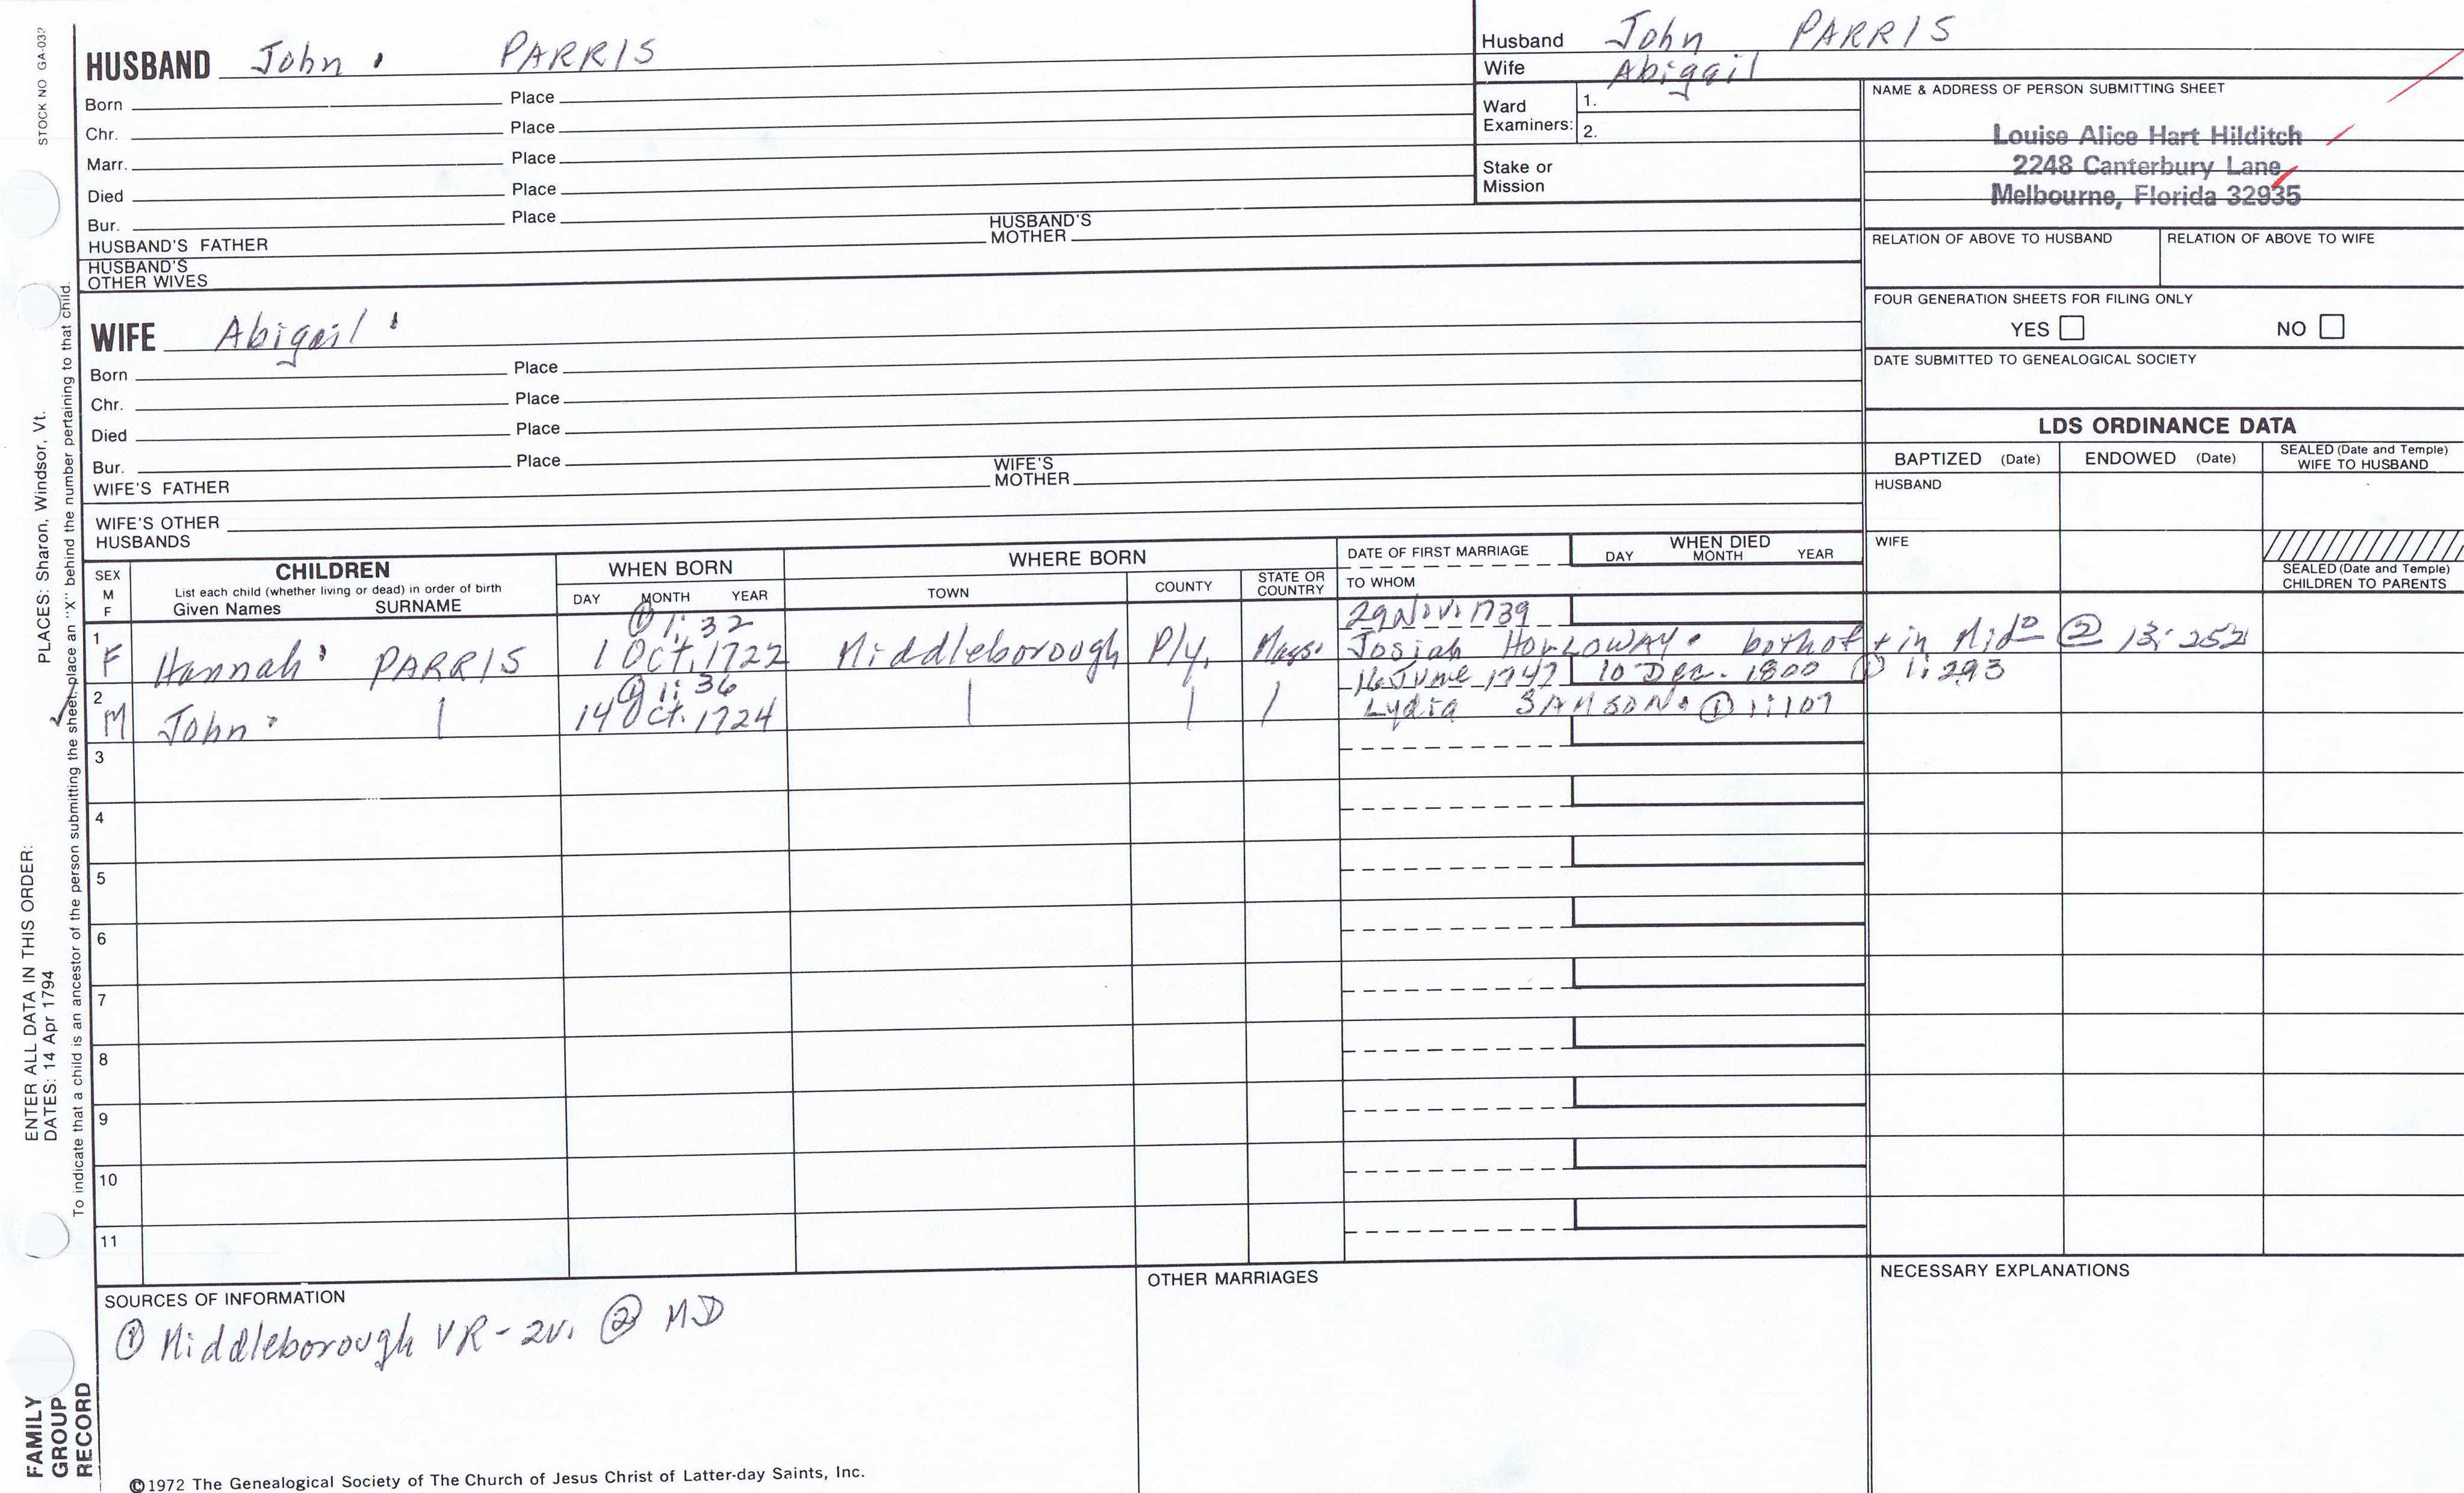 STOCK NO GA-032
HUSBAND John PARRIS
Born Place
Chr. Place
Marr. Place
Died Place
Bur. Place
HUSBAND'S FATHER HUSBAND'S MOTHER
HUSBAND'S OTHER WIVES
WIFE Abigail
Born Place
Chr. Place
Died Place
Bur. Place
WIFE'S FATHER WIFE'S MOTHER
WIFE'S OTHER HUSBANDS
Husband John PARRIS
Wife Abigail
Ward Examiners: 1.
2.
Stake or Mission
NAME & ADDRESS OF PERSON SUBMITTING SHEET
Louise Alice Hart Hilditch
2248 Canterbury Lane
Melbourne, Florida 32935
RELATION OF ABOVE TO HUSBAND RELATION OF ABOVE TO WIFE
FOUR GENERATION SHEETS FOR FILING ONLY
YES NO
DATE SUBMITTED TO GENEALOGICAL SOCIETY
LDS ORDINANCE DATA
BAPTIZED (Date) ENDOWED (Date) SEALED (Date and Temple) WIFE TO HUSBAND
HUSBAND
WIFE
SEALED (Date and Temple) CHILDREN TO PARENTS
SEX M F
CHILDREN
List each child (whether living or dead) in order of birth
Given Names SURNAME
WHEN BORN
DAY MONTH YEAR
WHERE BORN
TOWN COUNTY STATE OR COUNTRY
DATE OF FIRST MARRIAGE
TO WHOM
WHEN DIED
DAY MONTH YEAR
① 1:32 29 Nov. 1739
1 F Hannah PARRIS 1 Oct. 1722 Middleborough Ply. Mass. Josiah HOLLOWAY. both of + in Mido ② 13:252
① 1:36 16 June 1747 10 Dec. 1800 ① 1:293
2 M John 14 Oct. 1724 Lydia SAMSON. ① 1:107
3
4
5
6
7
8
9
10
11
SOURCES OF INFORMATION
① Middleborough VR-2v. ② MD
OTHER MARRIAGES
NECESSARY EXPLANATIONS
©1972 The Genealogical Society of The Church of Jesus Christ of Latter-day Saints, Inc.
ENTER ALL DATA IN THIS ORDER:
DATES: 14 Apr 1794
PLACES: Sharon, Windsor, Vt.
To indicate that a child is an ancestor of the person submitting the sheet, place an "X" behind the number pertaining to that child.
FAMILY
GROUP
RECORD